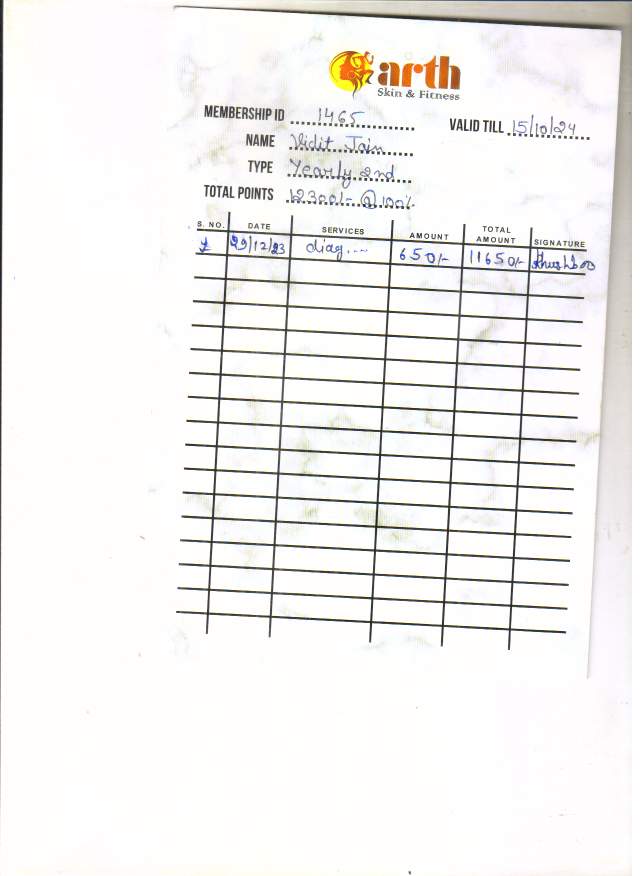 arth
Skin & Fitness
MEMBERSHIP ID 1465
VALID TILL 15/10/24
NAME Vidit Jain
TYPE Yearly 2nd
TOTAL POINTS 12300/- @ 100%
S. NO. DATE SERVICES AMOUNT TOTAL AMOUNT SIGNATURE
1 29/12/23 diag... 650/- 11650/- Khushboo